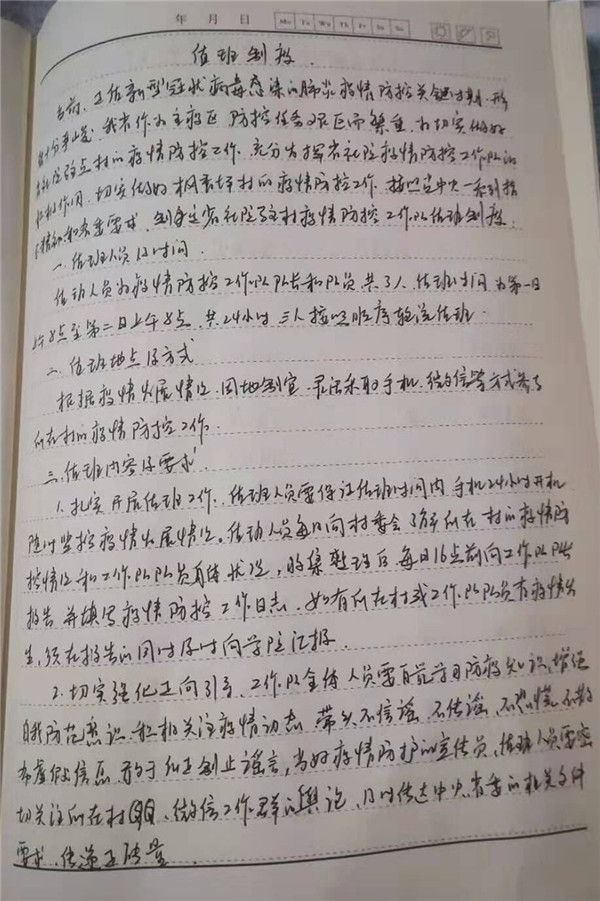 年 月 日 Mo Tu We Th Fr Sa Su
值班制度.
当前,正值新型冠状病毒感染的肺炎疫情防控关键时期,形
势十分严峻,我省作为主疫区防控任务艰巨而繁重,为切实做好
省社院驻点村的疫情防控工作,充分发挥省社院疫情防控工作队的
作用,切实做好枫香坪村的疫情防控工作,按照党中央一系列指
示精神和省委要求,制定省社院驻村疫情防控工作队值班制度.
一、值班人员及时间.
值班人员为疫情防控工作队队长和队员共3人,值班时间为第一日
上午8点至第二日上午8点,共24小时,三人按照顺序轮流值班.
二、值班地点及方式
根据疫情发展情况,因地制宜,灵活采取手机、微信等方式参与
所在村的疫情防控工作.
三、值班内容及要求
1.扎实开展值班工作,值班人员要保证值班时间内手机24小时开机
随时监控疫情发展情况.值班人员每日向村委会了解所在村的疫情防
控情况和工作队队员身体状况,收集整理后每日16点前向工作队队长
报告并填写疫情防控工作日志,如有所在村或工作队队员有疫情发
生,须在报告的同时及时向学院汇报.
2.切实强化正向引导.工作队全体人员要自觉学习防疫知识,增强
自我防范意识,积极关注疫情动态,带头不信谣、不传谣、不恐慌、不散
布虚假信息,敢于纠正制止谣言,当好疫情防护的宣传员,值班人员要密
切关注所在村QQ、微信工作群的舆论,及时传达中央、省委的相关文件
要求,传递正能量.